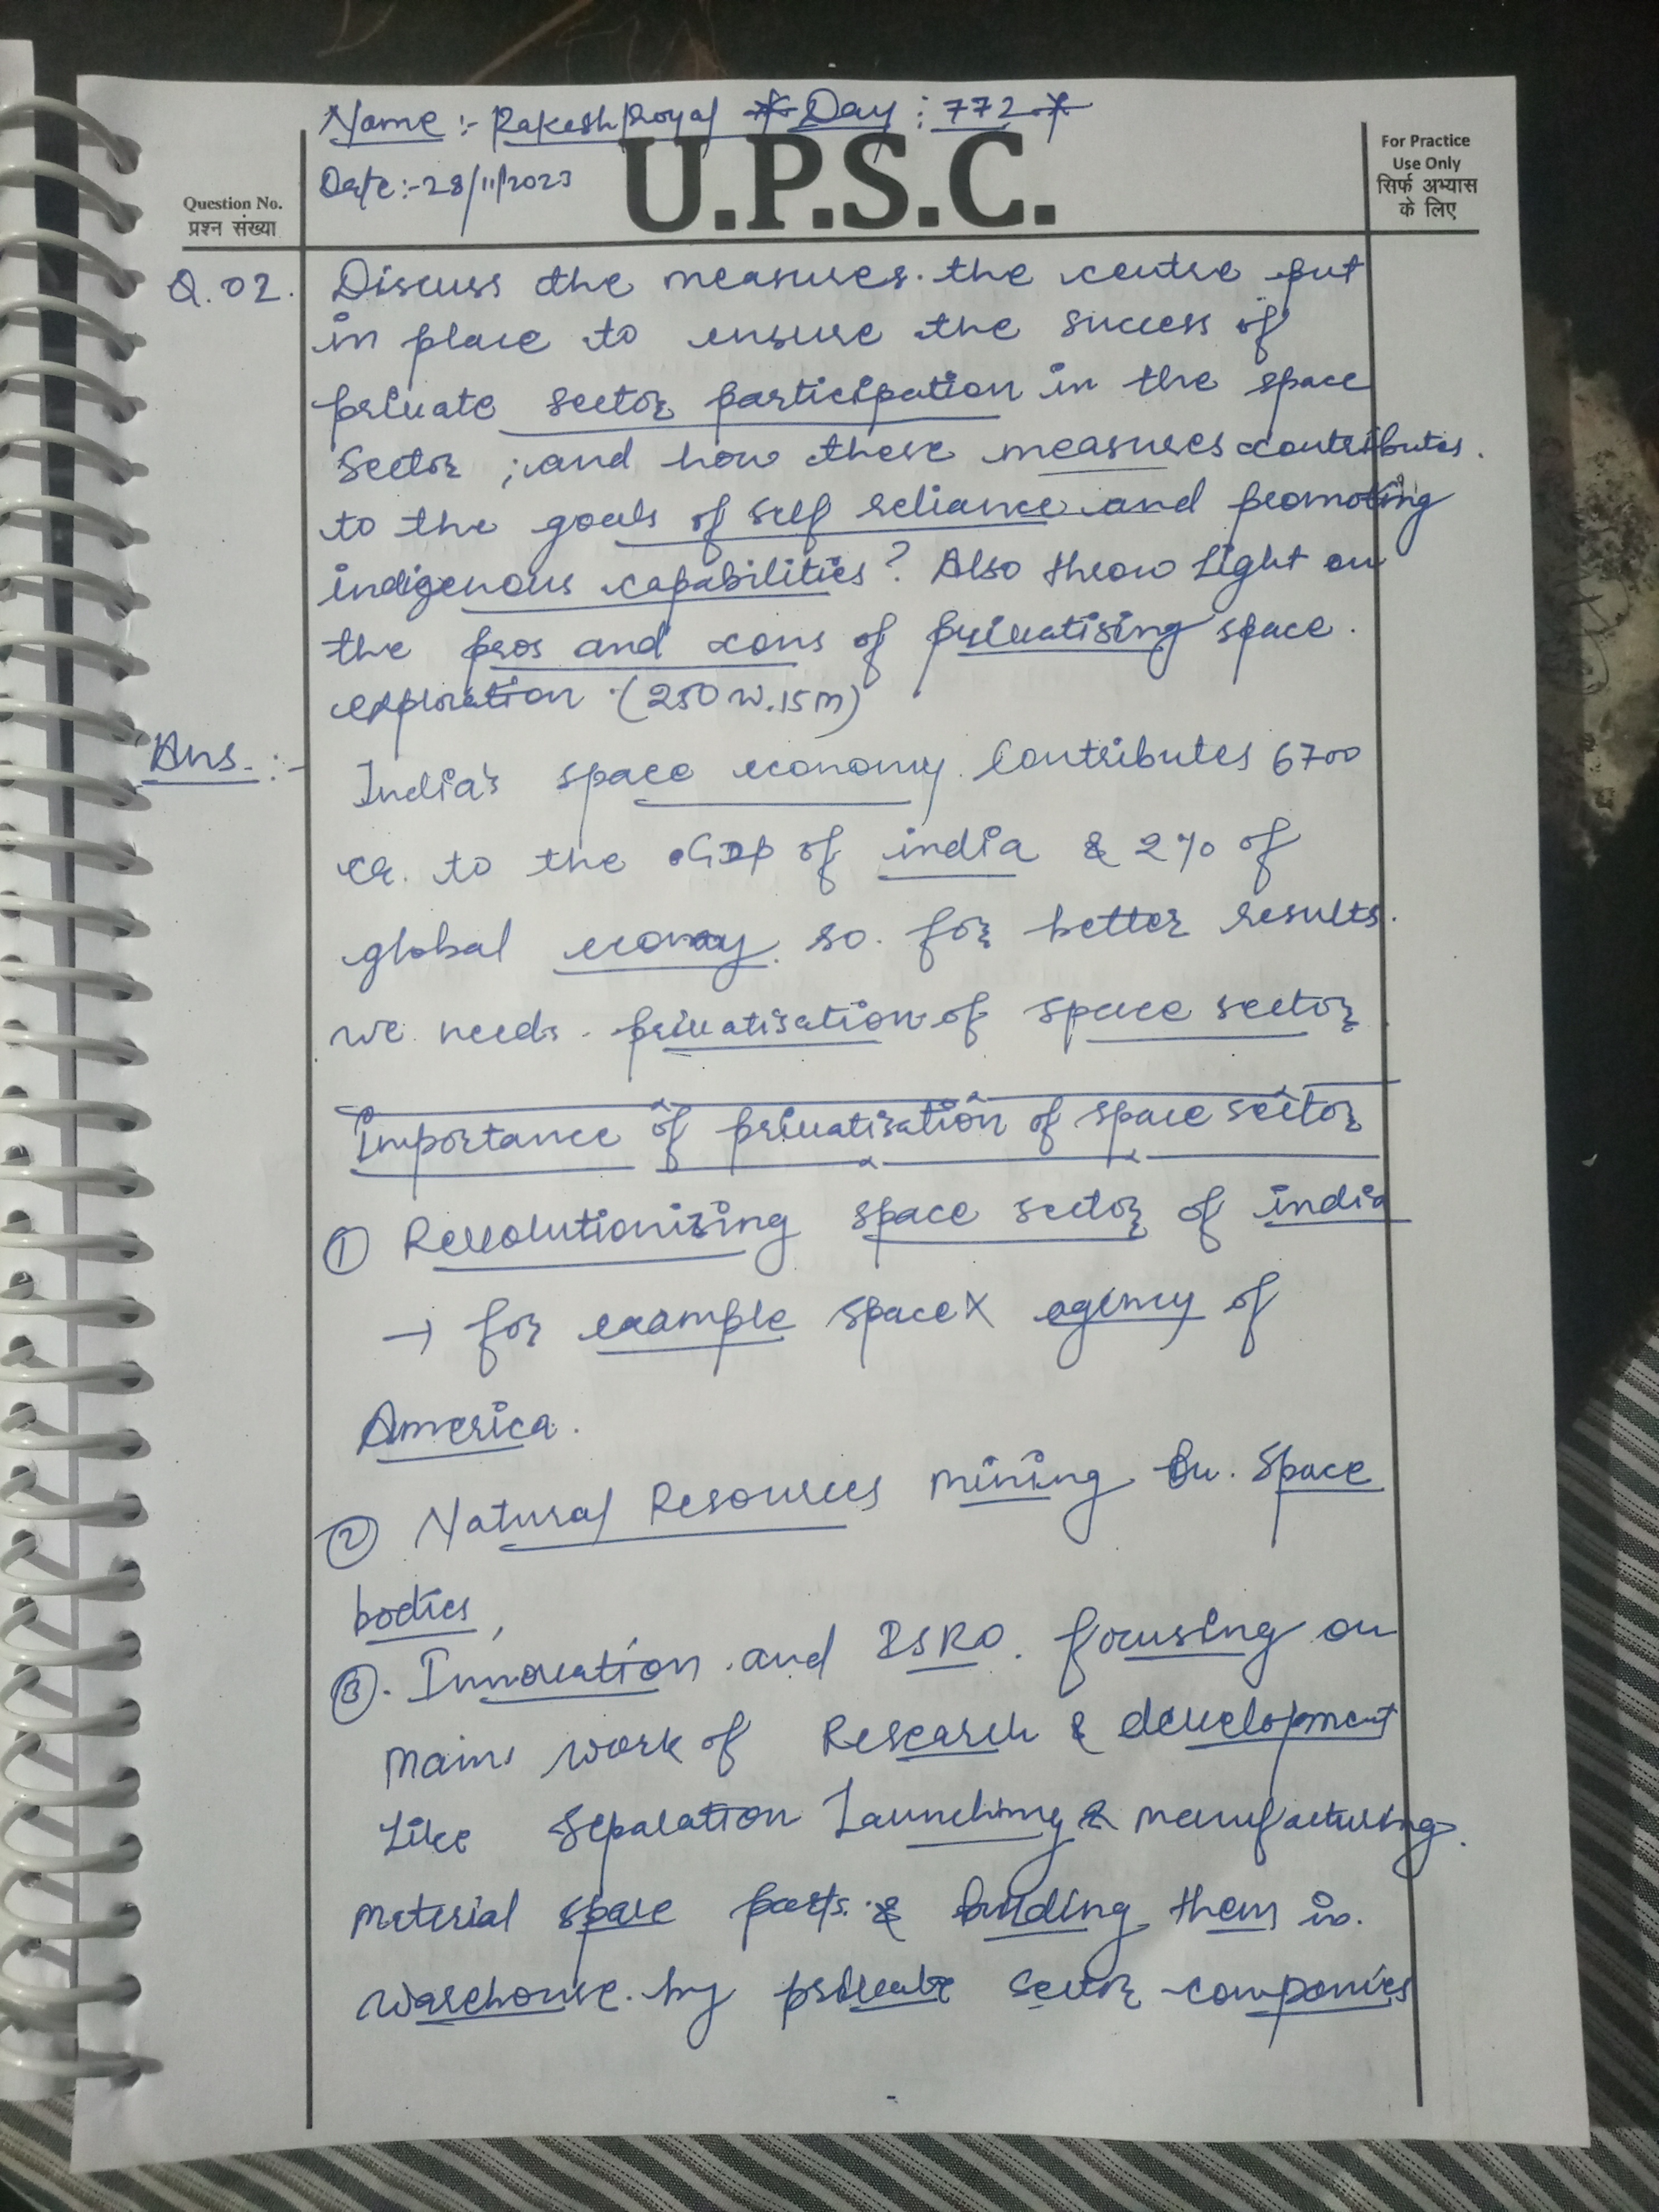 Name :- Rakesh Royal * Day : 772 *
Date :- 28/11/2023
U.P.S.C.
For Practice
Use Only
सिर्फ अभ्यास
के लिए
Question No.
प्रश्न संख्या
Q. 02. Discuss the measures the centre put
in place to ensure the success of
private sector participation in the space
sector ; and how these measures contributes
to the goals of self reliance and promoting
indigenous capabilities? Also throw light on
the pros and cons of privatising space
exploration. (250 w. 15 m)
Ans. :- India's space economy contributes 6700
cr. to the GDP of india & 2% of
global economy so for better results.
we needs privatisation of space sector
Importance of privatisation of space sector
① Revolutionizing space sector of india
→ for example spaceX agency of
America.
② Natural Resources mining on space
bodies,
③. Innovation and ISRO. focusing on
main work of Research & development
Like separation Launching & manufacturing.
material space parts. & building them in
warehouse by private sector companies